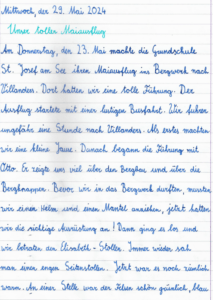 Mittwoch, den 29. Mai 2024
Unser toller Maiausflug
Am Donnerstag, den 23. Mai machte die Grundschule
St. Josef am See ihren Maiausflug ins Bergwerk nach
Villanders. Dort hatten wir eine tolle Führung. Der
Ausflug startete mit einer lustigen Busfahrt. Wir fuhren
ungefähr eine Stunde nach Villanders. Als erstes machten
wir eine kleine Jause. Danach begann die Führung mit
Otto. Er zeigte uns viel über den Bergbau und über die
Bergknappen. Bevor wir in das Bergwerk durften, mussten
wir einen Helm und einen Mantel anziehen, jetzt hatten
wir die richtige Ausrüstung an! Dann ging es los und
wir betraten den Elisabeth-Stollen. Immer wieder sah
man einen engen Seitenstollen. Jetzt war es noch ziemlich
warm. An einer Stelle war der Felsen schön grünlich, blau